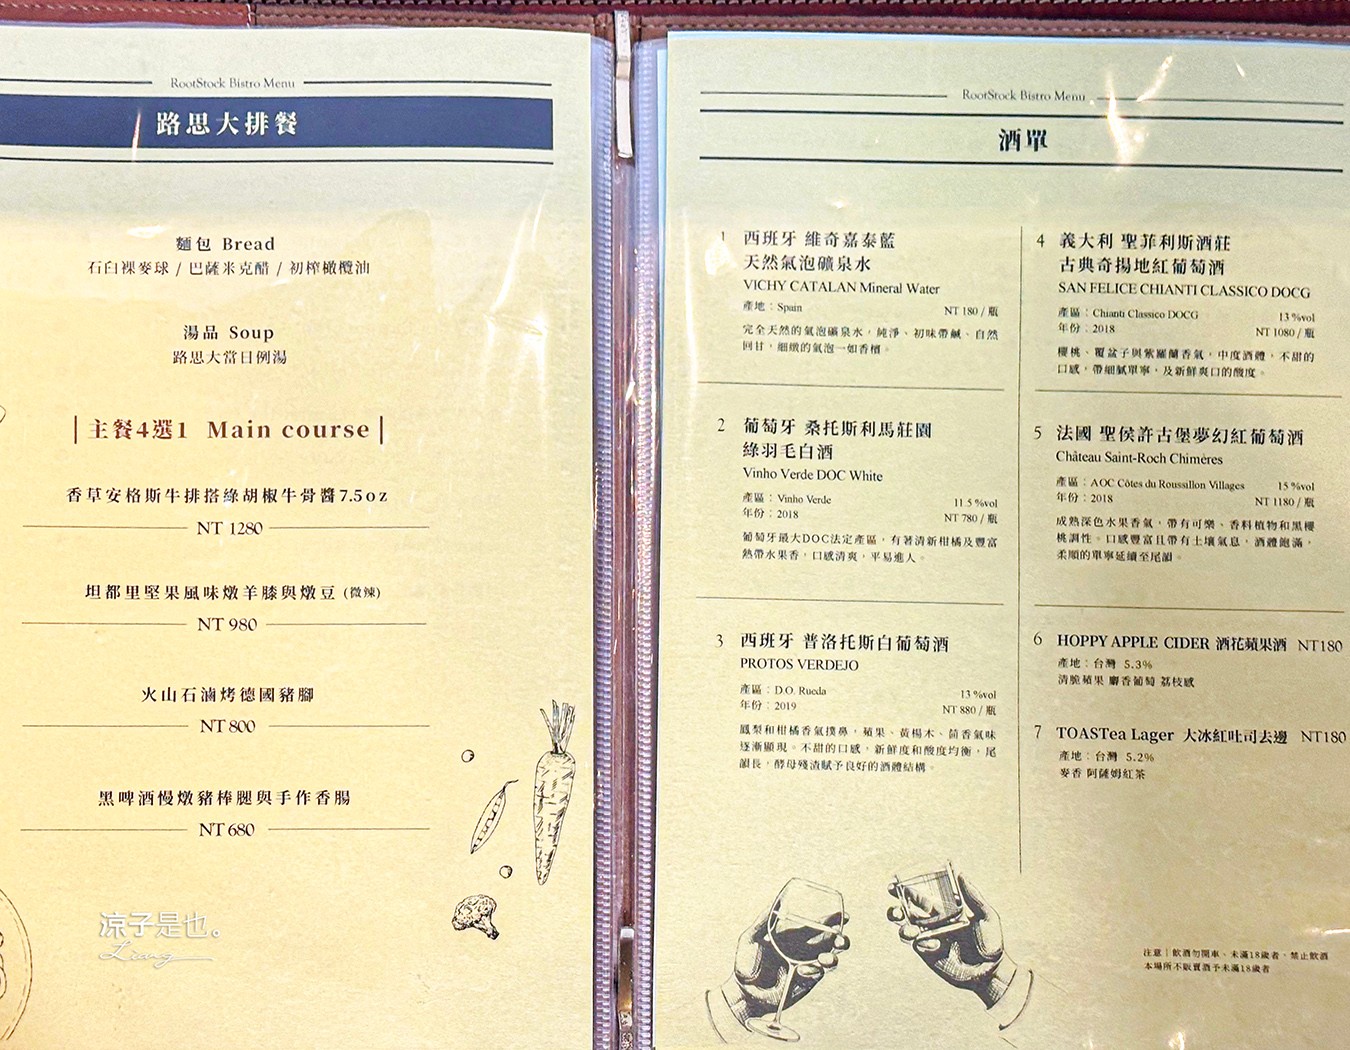 RootStock Bistro Menu
路思大排餐
麵包 Bread
石臼裸麥球 / 巴薩米克醋 / 初榨橄欖油
湯品 Soup
路思大當日例湯
主餐4選1 Main course
香草安格斯牛排搭綠胡椒牛骨醬7.5oz
NT 1280
坦都里堅果風味燉羊膝與燉豆 (微辣)
NT 980
火山石滷烤德國豬腳
NT 800
黑啤酒慢燉豬棒腿與手作香腸
NT 680
涼子是也。
Liang
RootStock Bistro Menu
酒單
1 西班牙 維奇嘉泰藍
天然氣泡礦泉水
VICHY CATALAN Mineral Water
產地：Spain NT 180 / 瓶
完全天然的氣泡礦泉水，純淨、初味帶鹹、自然
回甘，細緻的氣泡一如香檳。
2 葡萄牙 桑托斯利馬莊園
綠羽毛白酒
Vinho Verde DOC White
產區：Vinho Verde 11.5 %vol
年份：2018 NT 780 / 瓶
葡萄牙最大DOC法定產區，有著清新柑橘及豐富
熱帶水果香，口感清爽，平易進人。
3 西班牙 普洛托斯白葡萄酒
PROTOS VERDEJO
產區：D.O. Rueda 13 %vol
年份：2019 NT 880 / 瓶
鳳梨和柑橘香氣撲鼻，蘋果、黃楊木、茴香氣味
逐漸顯現。不甜的口感，新鮮度和酸度均衡，尾
韻長，酵母殘渣賦予良好的酒體結構。
4 義大利 聖菲利斯酒莊
古典奇揚地紅葡萄酒
SAN FELICE CHIANTI CLASSICO DOCG
產區：Chianti Classico DOCG 13 %vol
年份：2018 NT 1080 / 瓶
櫻桃、覆盆子與紫羅蘭香氣，中度酒體，不甜的
口感，帶細膩單寧，及新鮮爽口的酸度。
5 法國 聖侯許古堡夢幻紅葡萄酒
Château Saint-Roch Chimères
產區：AOC Côtes du Roussillon Villages 15 %vol
年份：2018 NT 1180 / 瓶
成熟深色水果香氣，帶有可樂、香料植物和黑櫻
桃調性。口感豐富且帶有土壤氣息，酒體飽滿，
柔順的單寧延續至尾韻。
6 HOPPY APPLE CIDER 酒花蘋果酒 NT180
產地：台灣 5.3%
清脆蘋果 麝香葡萄 荔枝感
7 TOASTea Lager 大冰紅吐司去邊 NT180
產地：台灣 5.2%
麥香 阿薩姆紅茶
注意｜飲酒勿開車、未滿18歲者，禁止飲酒
本場所不販賣酒予未滿18歲者